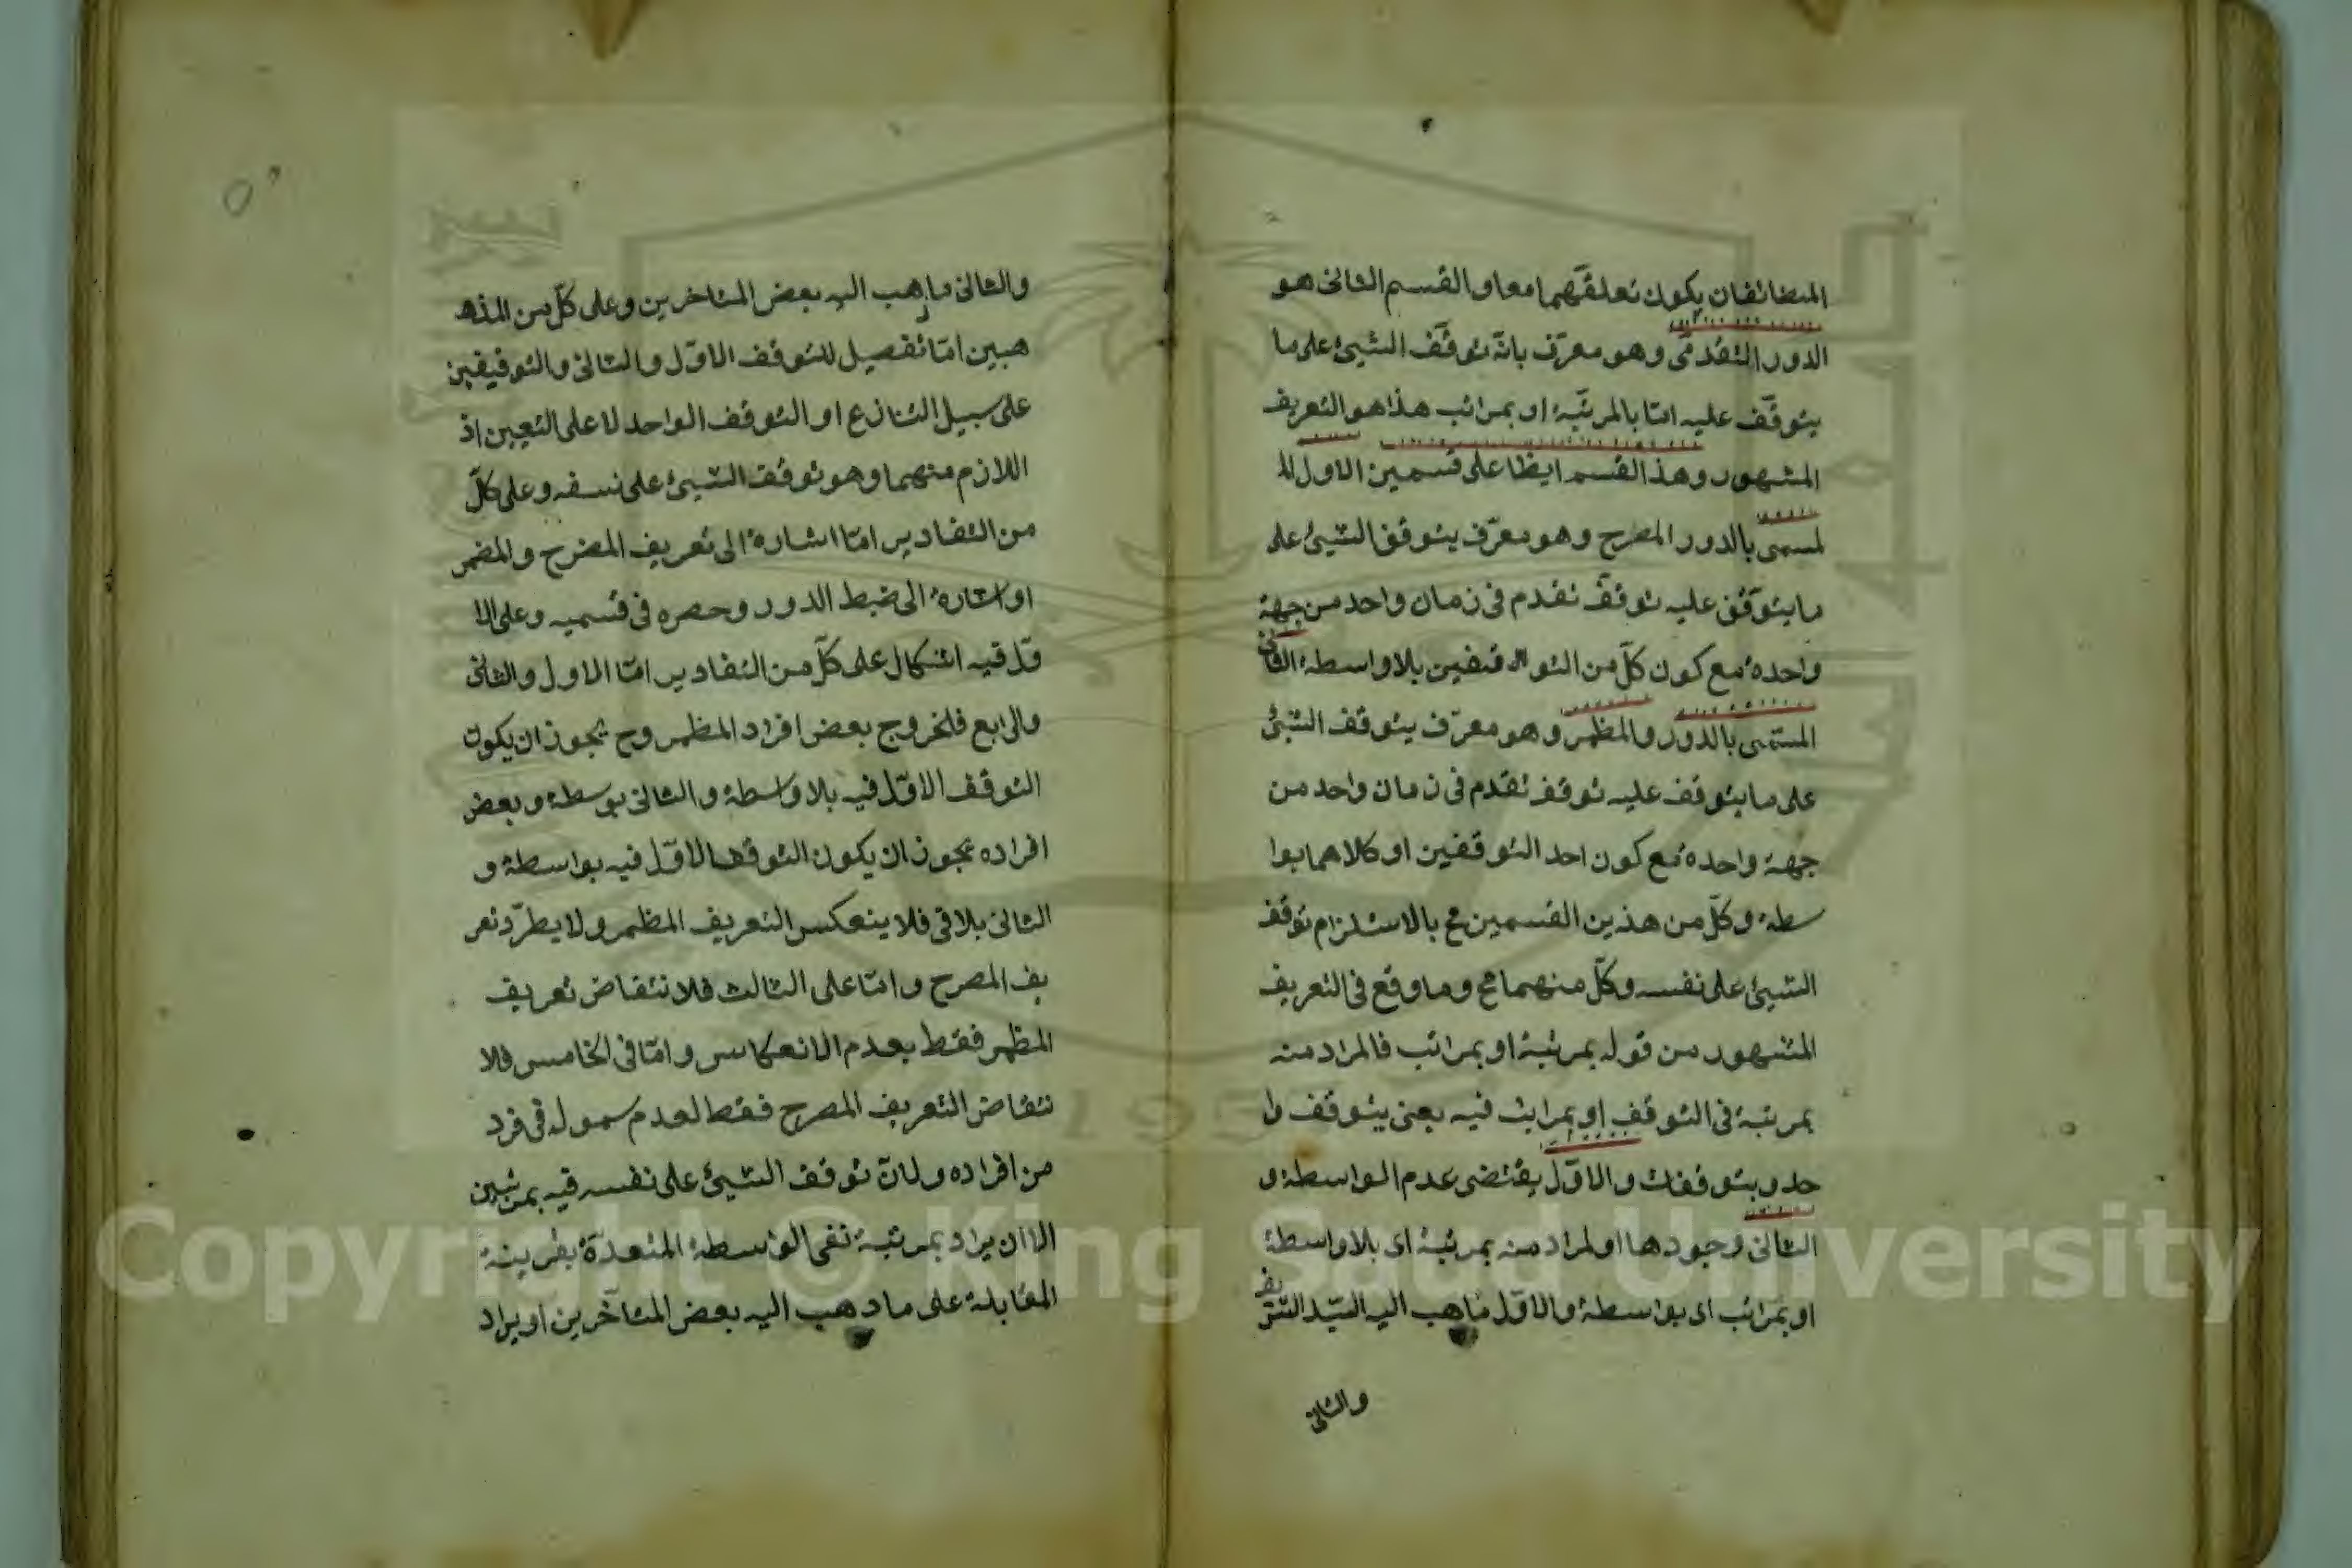 المتضائفان يكون تعلقهما معا والقسم الثانى هو
الدور التقدمى وهو معرّف بانّه توقّف الشيئ على ما
يتوقّف عليه امّا بالمرتبة او بمراتب هذا هو التعريف
المشهور وهذا القسم ايظا على قسمين الاول لل
لمسمى بالدور المصرح وهو معرّف يتوقف الشيئ على
ما يتوقف عليه توقف تقدم فى زمان واحد من جهة
واحدة مع كون كلّ من التو قفين بلا واسطة الثانى
المسمى بالدور والمظمر وهو معرّف يتوقف الشيئ
على ما يتوقف عليه توقف تقدم فى زمان واحد من
جهة واحدة مع كون احد التوقفين او كلاهما بوا
سطة وكلّ من هذين القسمين مح بالاستلزام توقف
الشيئ على نفسه وكلّ منهما مح وما وقع فى التعريف
المشهور من قوله بمرتبة او بمراتب فالمراد منه
بمرتبة فى التوقف او بمراتب فيه يعنى يتوقف وا
حد ويتوقفات والاوّل يقتضى عدم الواسطة و
الثانى وجودها اولمراد منه بمرتبة اى بلا واسطة
او بمراتب اى بواسطة والاوّل ماهب اليه السيّد الشريف
والثانى
والثانى ماذهب اليه بعض المتاخرين وعلى كلّ من المذه
هبين امّا تفصيل للتوقف الاوّل والثانى والتوقيقين
على سبيل التنازع او التوقف الواحد لا على التعيين اذ
اللازم منهما وهو توقف الشيئ على نسفه وعلى كلّ
من التقادير امّا اشارة الى تعريف المضرح والمضمر
او اشارة الى ضبط الدور وحصره فى قسميه وعلى الا
وّل فيه اشكال على كلّ من التقادير امّا الاول والثانى
والرابع فلخروج بعض افراد المظمر وح يجوز ان يكون
التوقف الاوّل فيه بلا واسطة والثانى بوسطة وبعض
افراده يجوز ان يكون التوقف الاوّل فيه بواسطة و
الثانى بلا فى فلا ينعكس التعريف المظمر ولا يطرّد تعر
يف المصرح وامّا على الثالث فلا نتقاض تعريف
المظمر فقط بعدم الانعكاس وامّا فى الخامس فلا
نتقاض التعريف المصرح فقط لعدم سموله فى فرد
من افراده ولانّ توقف الشيئ على نفسه فيه بمرتبين
الا ان يراد بمرتبة نفى الواسطة المتعدّة بقرينة
المقابلة على ما دهب اليه بعض المتأخرين او يراد
Copyright © King Saud University